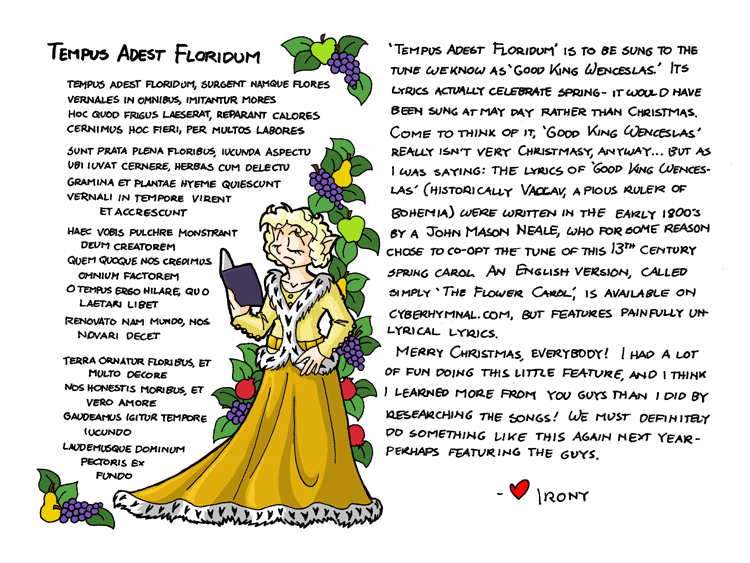 TEMPUS ADEST FLORIDUM
TEMPUS ADEST FLORIDUM, SURGENT NAMQUE FLORES
VERNALES IN OMNIBUS, IMITANTUR MORES
HOC QUOD FRIGUS LAESERAT, REPARANT CALORES
CERNIMUS HOC FIERI, PER MULTOS LABORES
SUNT PRATA PLENA FLORIBUS, IUCUNDA ASPECTU
UBI IUVAT CERNERE, HERBAS CUM DELECTU
GRAMINA ET PLANTAE HYEME QUIESCUNT
VERNALI IN TEMPORE VIRENT
ET ACCRESCUNT
HAEC VOBIS PULCHRE MONSTRANT
DEUM CREATOREM
QUEM QUOQUE NOS CREDIMUS
OMNIUM FACTOREM
O TEMPUS ERGO HILARE, QUO
LAETARI LIBET
RENOVATO NAM MUNDO, NOS
NOVARI DECET
TERRA ORNATUR FLORIBUS, ET
MULTO DECORE
NOS HONESTIS MORIBUS, ET
VERO AMORE
GAUDEAMUS IGITUR TEMPORE
IUCUNDO
LAUDEMUSQUE DOMINUM
PECTORIS EX
FUNDO
'TEMPUS ADEST FLORIDUM' IS TO BE SUNG TO THE
TUNE WE KNOW AS 'GOOD KING WENCESLAS.' ITS
LYRICS ACTUALLY CELEBRATE SPRING- IT WOULD HAVE
BEEN SUNG AT MAY DAY RATHER THAN CHRISTMAS.
COME TO THINK OF IT, 'GOOD KING WENCESLAS'
REALLY ISN'T VERY CHRISTMASY, ANYWAY... BUT AS
I WAS SAYING: THE LYRICS OF 'GOOD KING WENCES-
LAS' (HISTORICALLY VACLAV, A PIOUS RULER OF
BOHEMIA) WERE WRITTEN IN THE EARLY 1800'S
BY A JOHN MASON NEALE, WHO FOR SOME REASON
CHOSE TO CO-OPT THE TUNE OF THIS 13TH CENTURY
SPRING CAROL. AN ENGLISH VERSION, CALLED
SIMPLY 'THE FLOWER CAROL', IS AVAILABLE ON
CYBERHYMNAL.COM, BUT FEATURES PAINFULLY UN-
LYRICAL LYRICS.
MERRY CHRISTMAS, EVERYBODY! I HAD A LOT
OF FUN DOING THIS LITTLE FEATURE, AND I THINK
I LEARNED MORE FROM YOU GUYS THAN I DID BY
RESEARCHING THE SONGS! WE MUST DEFINITELY
DO SOMETHING LIKE THIS AGAIN NEXT YEAR-
PERHAPS FEATURING THE GUYS.
- ♥ IRONY